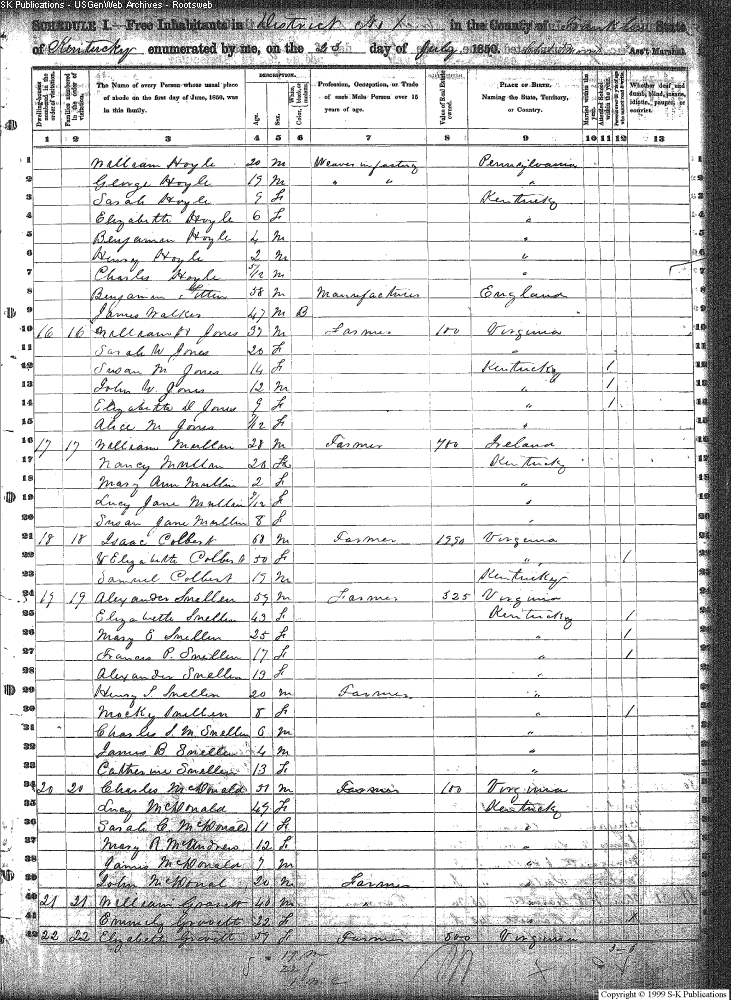 S-K Publications - USGenWeb Archives - Rootsweb
SCHEDULE I.—Free Inhabitants in District No 1 in the County of Franklin State
of Kentucky enumerated by me, on the 25 day of July 1850. Ass't Marshal.
Dwelling-houses numbered in the order of visitation.
Families numbered in the order of visitation.
The Name of every Person whose usual place of abode on the first day of June, 1850, was in this family.
DESCRIPTION.
Age.
Sex.
Color, White, black, or mulatto.
Profession, Occupation, or Trade of each Male Person over 15 years of age.
Value of Real Estate owned.
PLACE OF BIRTH. Naming the State, Territory, or Country.
Married within the year.
Attended School within the year.
Whether deaf and dumb, blind, insane, idiotic, pauper, or convict.
1 2 3 4 5 6 7 8 9 10 11 12 13
1 William Hoyle 20 m Weaver in factory Pennsylvania 1
2 George Hoyle 19 m " " " 2
3 Sarah Hoyle 9 f Kentucky 3
4 Elizabeth Hoyle 6 f " 4
5 Benjaman Hoyle 4 m " 5
6 Henry Hoyle 2 m " 6
7 Charles Hoyle 5/12 m " 7
8 Benjamin 58 m Manufacturer England 8
9 James Walker 47 m B 9
10 16 16 William H Jones 37 m Farmer 100 Virginia 10
11 Sarah W Jones 20 f " 11
12 Susan M Jones 14 f Kentucky / 12
13 John W. Jones 12 m " / 13
14 Elizabeth D Jones 9 f " / 14
15 Alice M Jones /12 f " 15
16 17 17 William Mullan 28 m Farmer 700 Ireland 16
17 Nancy Mullan 20 f Kentucky 17
18 Mary Ann Mullin 2 f " 18
19 Lucy Jane Mullin /12 f " 19
20 Susan Jane Mullin 8 f " 20
21 18 18 Isaac Colbert 68 m Farmer 1290 Virginia 21
22 Elizabeth Colbert 50 f " / 22
23 Samuel Colbert 19 m Kentuckey 23
24 19 19 Alexander Snellen 59 m Farmer 325 Virginia 24
25 Elizabeth Snellen 43 f Kentucky / 25
26 Mary E Snellen 25 f " / 26
27 Francis P. Snellen 17 f " / 27
28 Alexander Snellen 19 f " 28
29 Henry S. Snellen 20 m Farmer " 29
30 Snellen 8 f " / 30
31 Charles S. M Snellen 6 m " 31
32 James B Snellen 4 m " 32
33 Catherine Snellen 13 f " 33
34 20 20 Charles McDonald 51 m Farmer 100 Virginia 34
35 Lucy McDonald 49 f Kentucky 35
36 Sarah C. McDonald 11 f " 36
37 Mary R. McAndrews 12 f " 37
38 James McDonald 7 m " 38
39 John McDonal 20 m Farmer " 39
40 21 21 William 40 m " " 40
41 32 f " 41
42 22 22 Elizabeth 59 f Farmer 500 Virginia 42
Copyright © 1999 S-K Publications